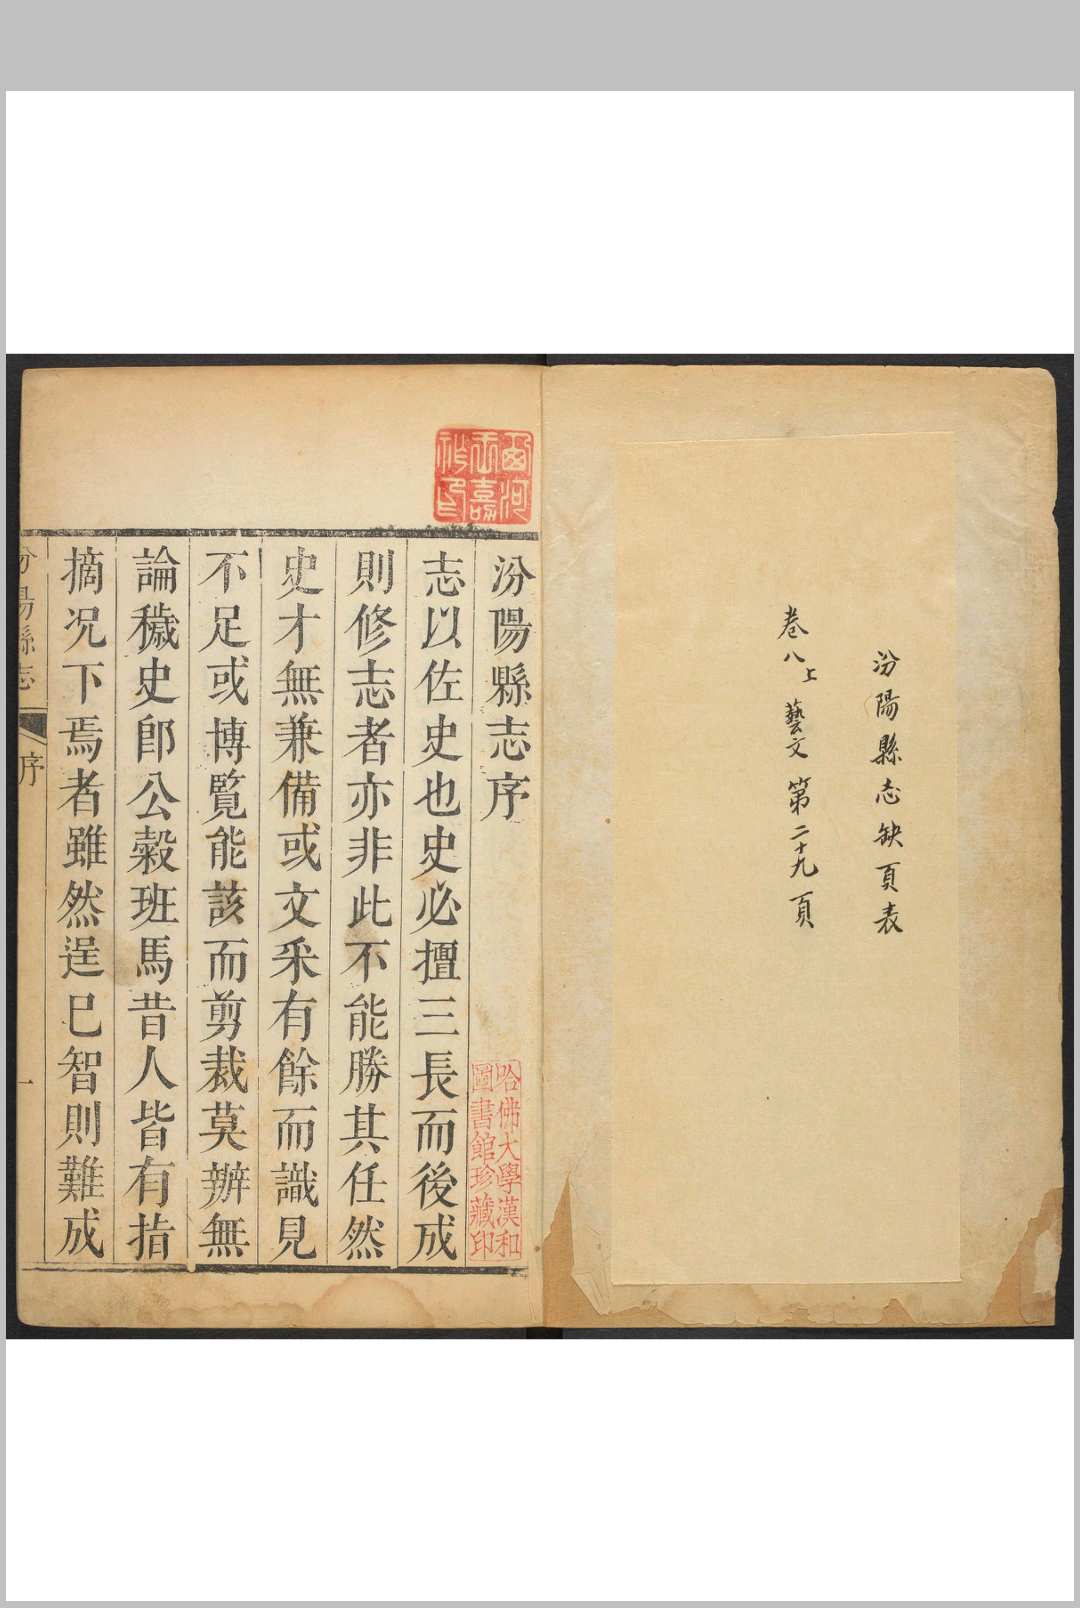 汾陽縣志缺頁表
卷八上 藝文 第二十九頁
汾陽縣志序
志以佐史也史必擅三長而後成
則修志者亦非此不能勝其任然
史才無兼備或文采有餘而識見
不足或博覧能該而剪裁莫辦無
論穢史卽公穀班馬昔人皆有指
摘况下焉者雖然逞巳智則難成
汾陽縣志 序 一
哈佛大學漢和
圖書館珍藏印